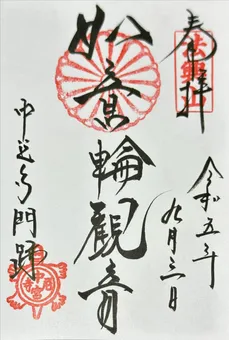 奉拝
法興山
令和五年
九月三日
如意輪観音
中宮寺門跡